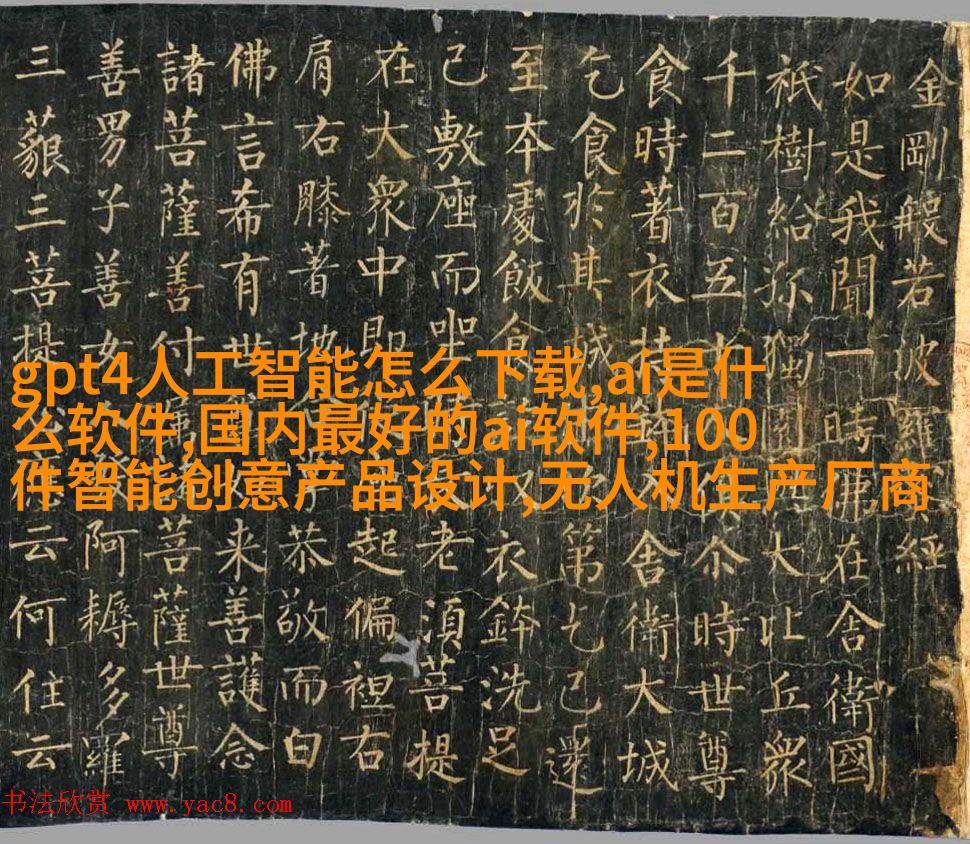 金剛般若波羅經
如是我聞一時佛在舍衛國
祇樹給孤獨園大比丘衆
千二百五十尒時世尊
食時著衣持舍衛大城
乞食於其城第乞已還
至本處飯食衣鉢洗足
已敷座而坐老須菩提
在大衆中即起偏袒右
肩右膝著地恭敬而白
佛言希有世来善護念
諸菩薩善付菩薩世尊
善男子善女阿耨多羅
三藐三菩提云何住云
gpt4人工智能怎么下载,ai是什
么软件,国内最好的ai软件,100
件智能创意产品设计,无人机生产厂商
书法欣赏 www.yac8.com